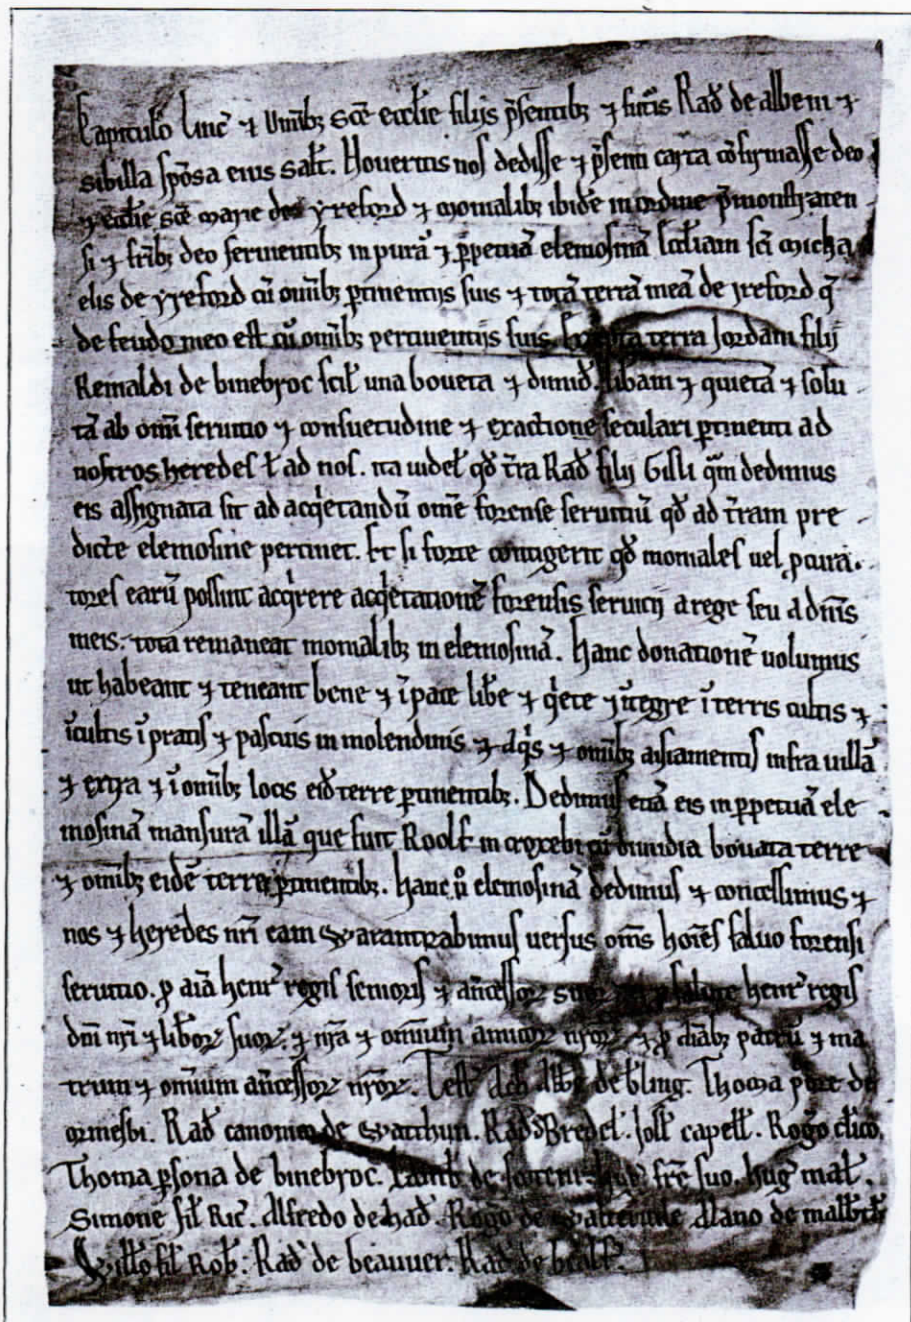 Capitulo Linc̄ ⁊ Vniūsis sc̄e eccl̄ie filijs p̄sentib; ⁊ futuris Rad̄ de albeni ⁊
sibilla sp̄osa eius salt̄. Noueritis nos dedisse ⁊ p̄senti carta c̄ofirmasse deo
⁊ eccl̄ie sc̄e marie de yreford ⁊ monialib; ibid̄e in ordine p̄monstraten
si ⁊ fr̄ib; deo seruientib; in purā ⁊ p̄petuā elemosinā eccl̄iam sc̄i micha
elis de yreford cū omīb; ptinentijs suis ⁊ totā terrā meā de yreford q̄
de feudo meo est cū omīb; pertinentijs suis terra Jordani filij
Reinaldi de binebroc scil̄ una boueta ⁊ dimid̄. lib̄am ⁊ quietā ⁊ solu
tā ab omī seruitio ⁊ consuetudine ⁊ exactione seculari ptinenti ad
nostros heredes ł ad nos. ita uidel̄ qd̄ t̄ra Rad̄ filij Gisli q̄m dedimus
eis assignata sit ad acq̇etandū omē forense seruitiū qd̄ ad t̄ram pre
dicte elemosine pertinet. Et si forte contigerit qd̄ moniales uel pcura
tores earū possint acq̇rere acq̇etationē forensis seruicij a rege seu a dn̄is
meis: tota remaneat monialib; in elemosinā. Hanc donationē uolumus
ut habeant ⁊ teneant bene ⁊ ī pace lib̄e ⁊ q̇ete ⁊ ītegre ī terris cultis ⁊
īcultis ī pratis ⁊ pascuis in molendinis ⁊ aq̇s ⁊ omīb; aisiamentis infra uillā
⁊ extra ⁊ ī omīb; locis eid̄ terre ptinentib;. Dedimus etiā eis in p̄petuā ele
mosinā mansurā illā que fuit Roolf in cū dimidia bouata terre
⁊ omīb; eidē terre ptinentib;. Hanc ů elemosinā dedimus ⁊ concessimus ⁊
nos ⁊ heredes nr̄i eam Warantizabimus uersus om̄s hoīes saluo forensi
seruitio. p aīa henr̄ regis senioris ⁊ ān̄cessoꝝ suoꝝ p salute henr̄ regis
dn̄i nr̄i ⁊ lib̄oꝝ suoꝝ. ⁊ nr̄a ⁊ omnium amicoꝝ nr̄oꝝ. ⁊ p aīab; patrū ⁊ ma
trum ⁊ omnium ān̄cessoꝝ nr̄oꝝ. Test̄ de b̄ling. Thoma p̄ore de
ormesbi. Rad̄ canonico de Watthun. Rad̄ d̄ Bredel̄. Joll̄ capell̄. Rog̊o cl̄ico.
Thoma psona de binebroc. Lamb̄ de fr̄e suo. hug̊ mal̄.
Simone fil̄ Ric̄. Alfredo de had̄. Rog̊o de Watteuile Alano de
Will̄o fil̄ Rob̄: Rad̄ de beauuer. Rad̄ de